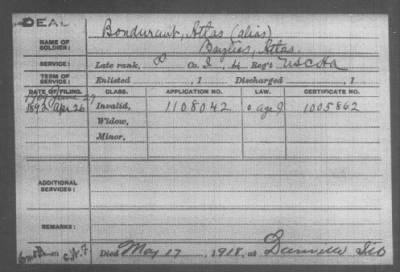 DEAL
NAME OF SOLDIER: Bondurant, Atlas (alias)
Bayliss, Atlas.
SERVICE: Late rank, P Co. I, 4 Reg't USCHA
TERM OF SERVICE: Enlisted , 1 Discharged , 1
DATE OF FILING. CLASS. APPLICATION NO. LAW. CERTIFICATE NO.
1909 June 29
1892 Apr 26 Invalid, 1108042 1005862
Widow,
Minor,
ADDITIONAL SERVICES:
REMARKS:
Died May 17, 1918, at